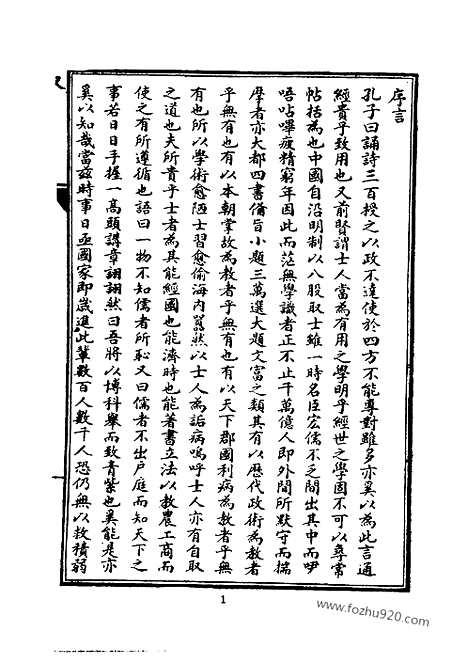 序言
孔子曰誦詩三百授之以政不達使於四方不能專對雖多亦奚以為此言通
經貴乎致用也又前賢謂士人當為有用之學明乎經世之學固不可以尋常
帖括為也中國自沿明制以八股取士雖一時名臣宏儒不乏間出其中而呻
唔呫嗶疲精窮年因此而茫無學識者正不止千萬億人即外間所默守而揣
摩者亦大都四書備旨小題三萬選大題文富之類其有以歷代政術為教者
乎無有也有以本朝掌故為教者乎無有也有以天下郡國利病為教者乎無
有也所以學術愈陋士習愈偷海內嚣然以士人為詬病嗚呼士人亦有自取
之道也夫所貴乎士者為其能經國也能濟時也能著書立法以教農工商而
使之有所遵循也語曰一物不知儒者所恥又曰儒者不出戶庭而知天下之
事若日日手握一高頭講章詡詡然曰吾將以博科舉而致青紫也奚能是亦
奚以知哉當茲時事日亟國家即歲進此輩數百人數千人恐仍無以救積弱
1
www.fozhu920.com